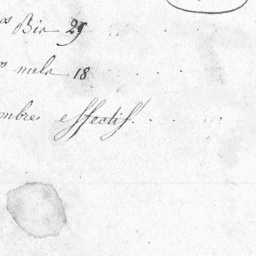 os Bis 29
os mela 18
ombres effectif